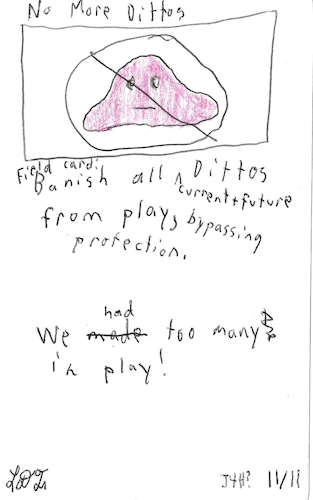 No More Dittos
Field card:
Banish all current+future Dittos
from play, bypassing
protection.
had
We made too many
in play!
11/11